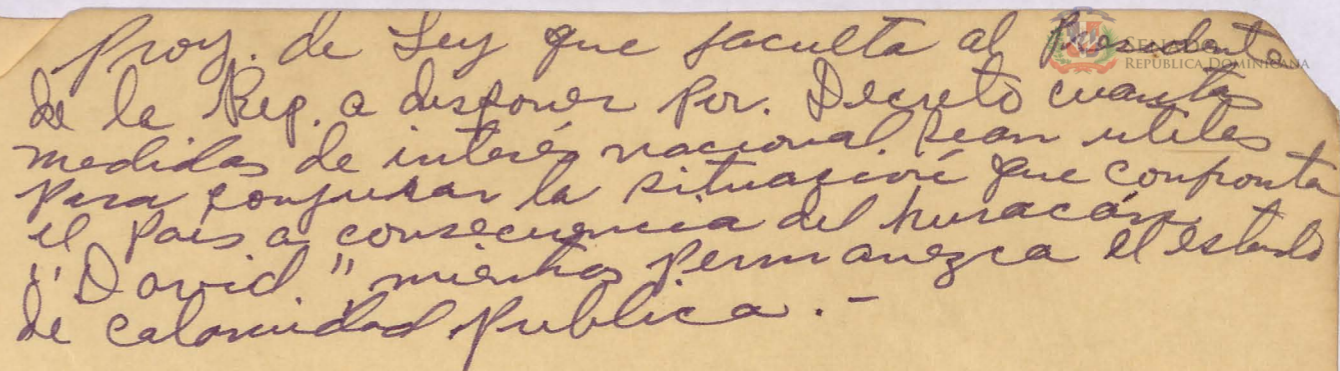 Proy. de Ley que faculta al Presidente
de la Rep. a disponer por. Decreto cuantas
medidas de interés nacional sean utiles
para conjurar la situación que confronta
el País a consecuencia del huracán
"David" mientras permanezca el estado
de calamidad publica. -
SENADO
REPÚBLICA DOMINICANA